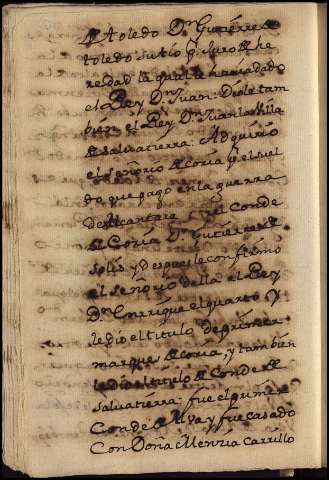 de toledo Dn Gutierre de
toledo su tio por juro de he
redad la qual le havia dado
el Rey Dn Juan: Diole tam
bien el Rey Dn Juan la Villa
de salvatierra: Adquirio
el señorio de coria por el suel
do que pago en la guerra
de Alcantara el Conde
de Coria Dn Gutierre de
solis y despues le confirmo
el señorio della el Rey
Dn Enrrique el quarto y
le dio el titulo de primer
marques de coria, y tambien
le dio el titulo de Conde de
salvatierra: fue el primer
Conde de Alva y fue casado
Con Doña Menzia Carrillo